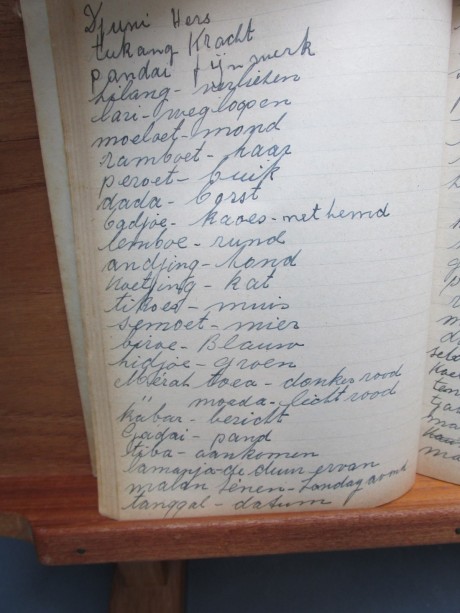 Djuni Hers
tukang Kracht
pandai fijnwerk
hilang - verliezen
lari - wegloopen
moeloet - mond
ramboet - haar
peroet - buik
dada - borst
badjoe - kaoes - net hemd
lemboe - rund
andjing - hond
koetjing - kat
tikoes - muis
semoet - mier
biroe - Blauw
hidjoe - groen
Merah toea - donker rood
" moeda - licht rood
kabar - bericht
Gadai - pand
tiba - aankomen
lamanja - de duur ervan
malan Senen - Zondag avond
tanggal - datum